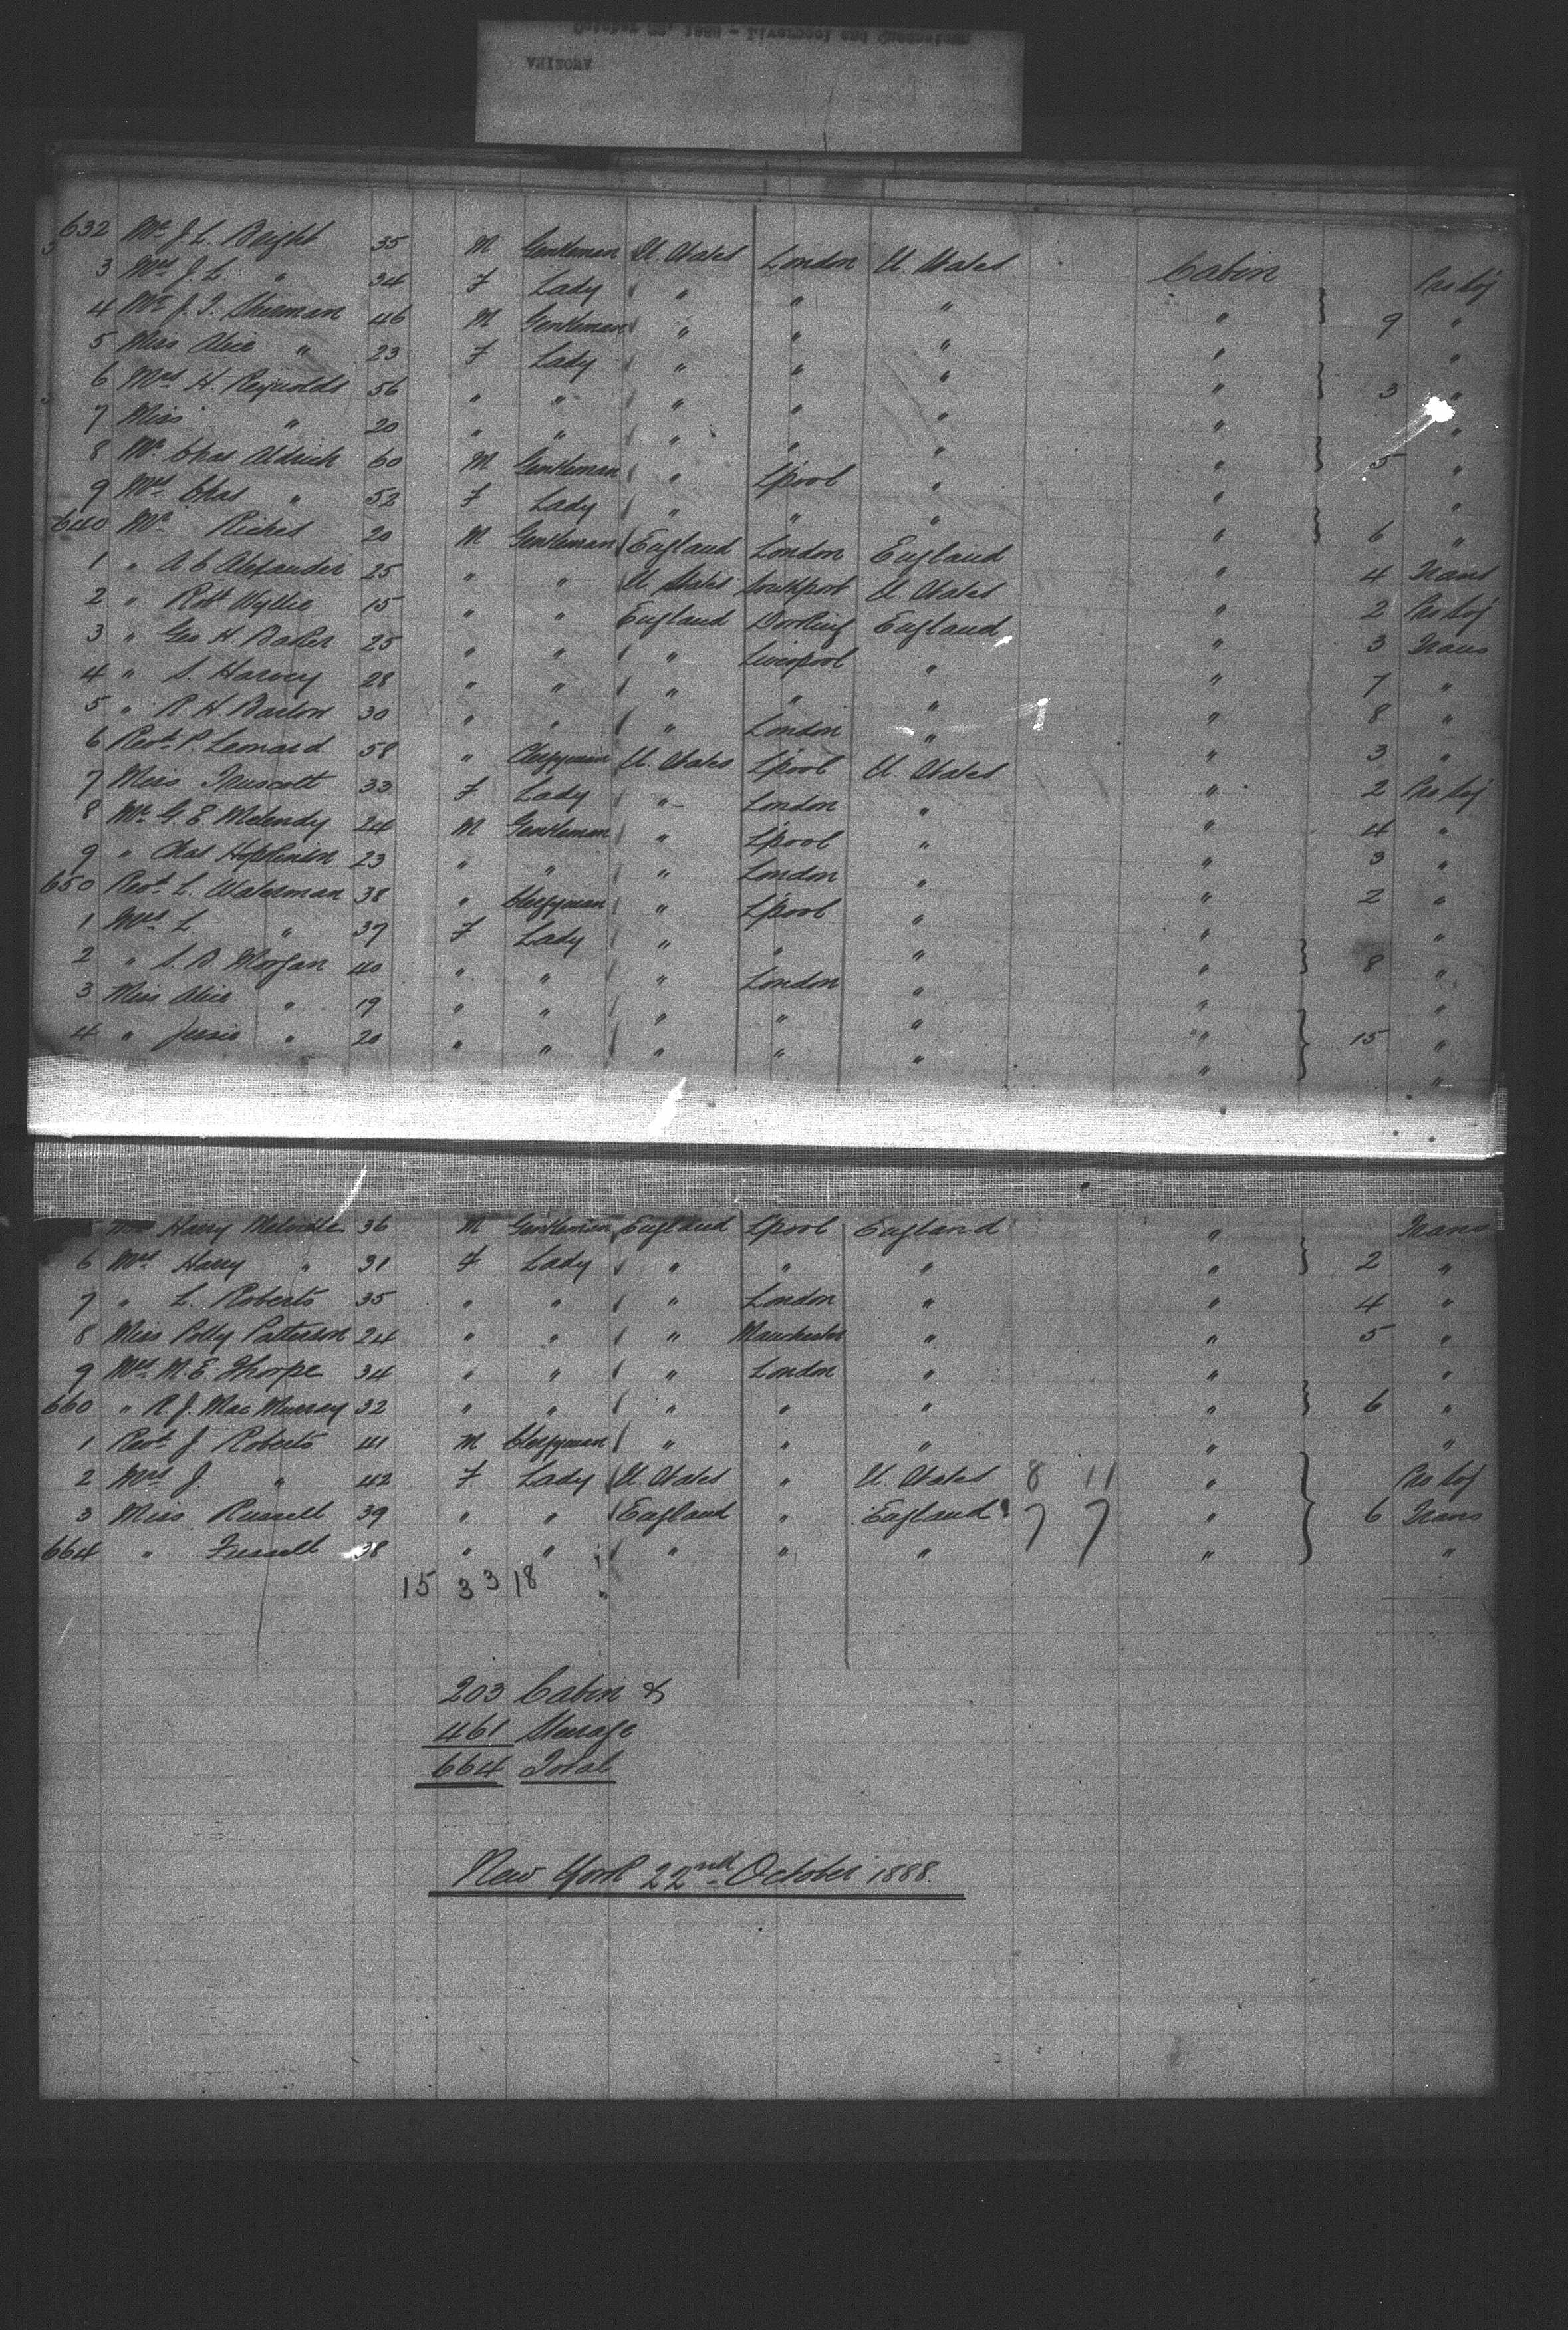 October 22, 1888 - Liverpool and Queenstown
632 Mr J. L. Bright 35 M Gentleman U. States London U. States Cabin
3 Mrs J. L. " 34 F Lady " " " " "
4 Mr J. T. Sherman 46 M Gentleman " " " " 9 "
5 Miss Alice " 23 F Lady " " " " "
6 Mrs H. Reynolds 56 " " " " " " 3 "
7 Miss " 20 " " " " " " "
8 Mr Chas Aldrich 60 M Gentleman " L'pool " " 5 "
9 Mrs Chas " 52 F Lady " " " " "
640 Mr Riches 20 M Gentleman England London England " 6 "
1 " A. C. Alexander 25 " " U. States Southport U. States " 4 Trans
2 " Robt Wyllie 15 " " England Dorking England " 2
3 " Geo H. Baker 25 " " " Liverpool " " 3 Trans
4 " S. Harvey 28 " " " " " " 7 "
5 " R. H. Barlow 30 " " " London " " 8 "
6 Revd P. Leonard 58 " Clergyman U. States L'pool U. States " 3 "
7 Miss Truscott 33 F Lady " London " " 2
8 Mr G. E. Melendy 24 M Gentleman " L'pool " " 4 "
9 " Chas Hopkinson 23 " " " London " " 3 "
650 Revd L. Waterman 38 " Clergyman " L'pool " " 2 "
1 Mrs L. " 37 F Lady " " " " "
2 " S. B. Morgan 40 " " " London " " 8 "
3 Miss Alice " 19 " " " " " " "
4 " Jessie " 20 " " " " " " 15 "
" "
Harry Melville 36 M Gentleman England L'pool England " Trans
6 Mrs Harry " 31 F Lady " " " " 2 "
7 " L. Roberts 35 " " " London " " 4 "
8 Miss Polly Patterson 24 " " " Manchester " " 5 "
9 Mrs M. E. Thorpe 34 " " " London " " "
660 " R. J. Mac Murray 32 " " " " " " 6 "
1 Revd J. Roberts 41 M Clergyman " " " " "
2 Mrs J. " 42 F Lady U. States " U. States 8 11 "
3 Miss Russell 39 " " England " England 7 7 " 6 Trans
664 " Fussell 38 " " " " " " "
15 3 3 18
203 Cabin &
461 Steerage
664 Total
New York 22nd October 1888.